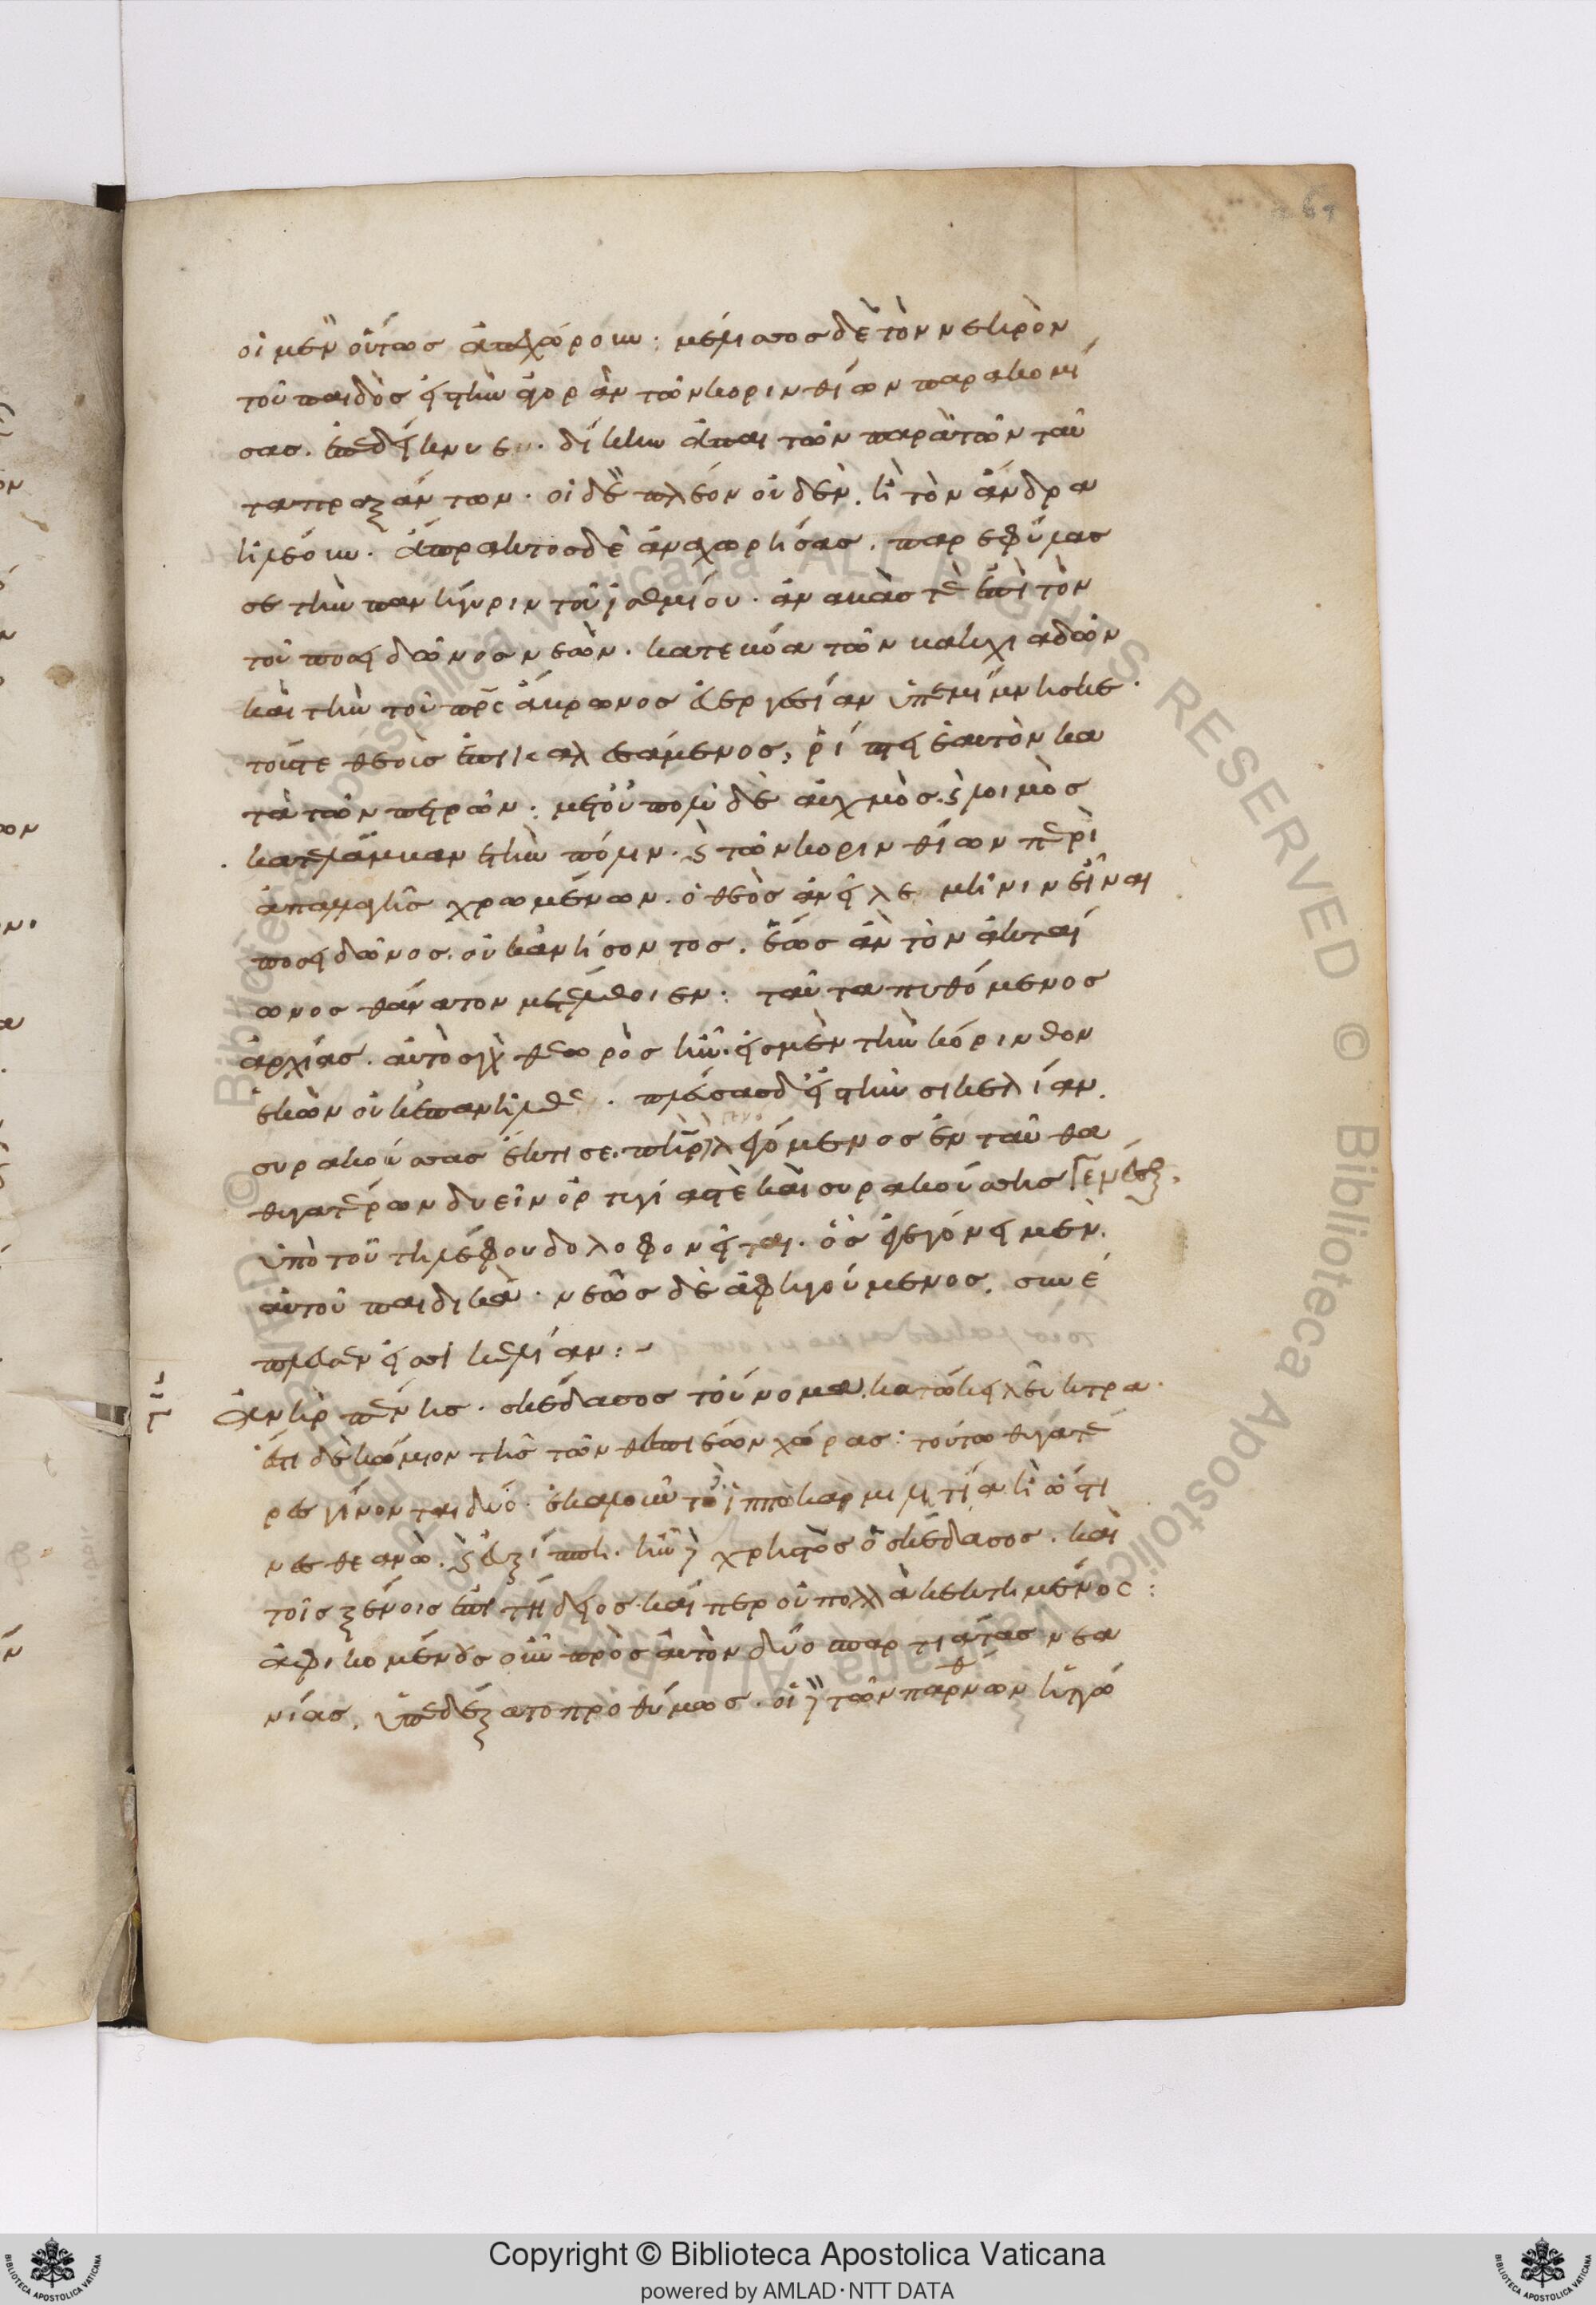 οἱ μὲν οὕτως ἀπεχώρουν: μέλισσος δὲ τὸν νεκρὸν
τοῦ παιδὸς εἰς τὴν ἀγορὰν τῶν κορινθίων παρακομί
σας. ἐπεδείκνυεν. δίκην ἀπαιτῶν παρὰ τῶν ταῦ
τα πραξάντων. οἱ δὲ πλέον οὐδὲν. ἢ τὸν ἄνδρα
ἠλέουν. ἄπρακτος δὲ ἀναχωρήσας. παρεφύλασ
σε τὴν πανήγυριν τοῦ ἰσθμίου. ἀναβάς τὲ ἐπὶ τὸν
τοῦ ποσειδῶνος νεὼν. κατεβόα τῶν βακχιαδῶν
καὶ τὴν τοῦ πρς ἅβρωνος εὐεργεσίαν ὑπεμίμνησκε.
τούς τε θεοὺς ἐπικαλεσάμενος, ῥίπτει ἑαυτὸν κα
τὰ τῶν πετρῶν: μετ' οὐ πολὺ δὲ αὐχμὸς. καὶ λοιμὸς
κατελάμβανε τὴν πόλιν. καὶ τῶν κορινθίων περὶ
ἀπαλλαγῆς χρωμένων. ὁ θεὸς ἀνεῖλε μῆνιν εἶναι
ποσειδῶνος. οὐκ ἀνήσοντος. ἕως ἂν τὸν ἀκταί
ωνος θάνατον μετέλθοιεν: ταῦτα πυθόμενος
ἀρχίας. αὐτὸς γὰρ θεωρὸς ἦν. εἰς μὲν τὴν κόρινθον
ἑκὼν οὐκ ἐπανῆλθε. πλεύσας δ' εἰς τὴν σικελίαν.
συρακούσας ἔκτισε. πατὴρ δὲ γενόμενος ἐνταῦθα
θυγατέρων δυεῖν ὀρτυγίας τὲ καὶ συρακούσης
ὑπὸ τοῦ τηλέφου δολοφονεῖται. ὃς ἐγεγόνει μὲν.
αὐτοῦ παιδικά. νεὼς δὲ ἀφηγούμενος. συνέ
πλευσεν εἰς σικελίαν:
ἀνὴρ πένης. σκέδασος τοὔνομα. κατώκει λεῦκτρα.
ἔστι δὲ κώμιον τῆς τῶν θεσπιέων χώρας: τούτω θυγατέ
ρες γίνονται δύο. ἐκαλοῦντο ἱππὼ καὶ μιλητία ἢ ὥς τι
νες θεανὼ. καὶ εὐξίππη. ἦν δὲ χρηστὸς ὁ σκέδασος. καὶ
τοῖς ξένοις ἐπιτήδειος. καίπερ οὐ πολλὰ κεκτημένος:
ἀφικομένους οὖν πρὸς αὐτὸν δύο σπαρτιάτας νεα
νίας. ὑπεδέξατο προθύμως. οἱ δὲ τῶν παρθένων ἡττώ